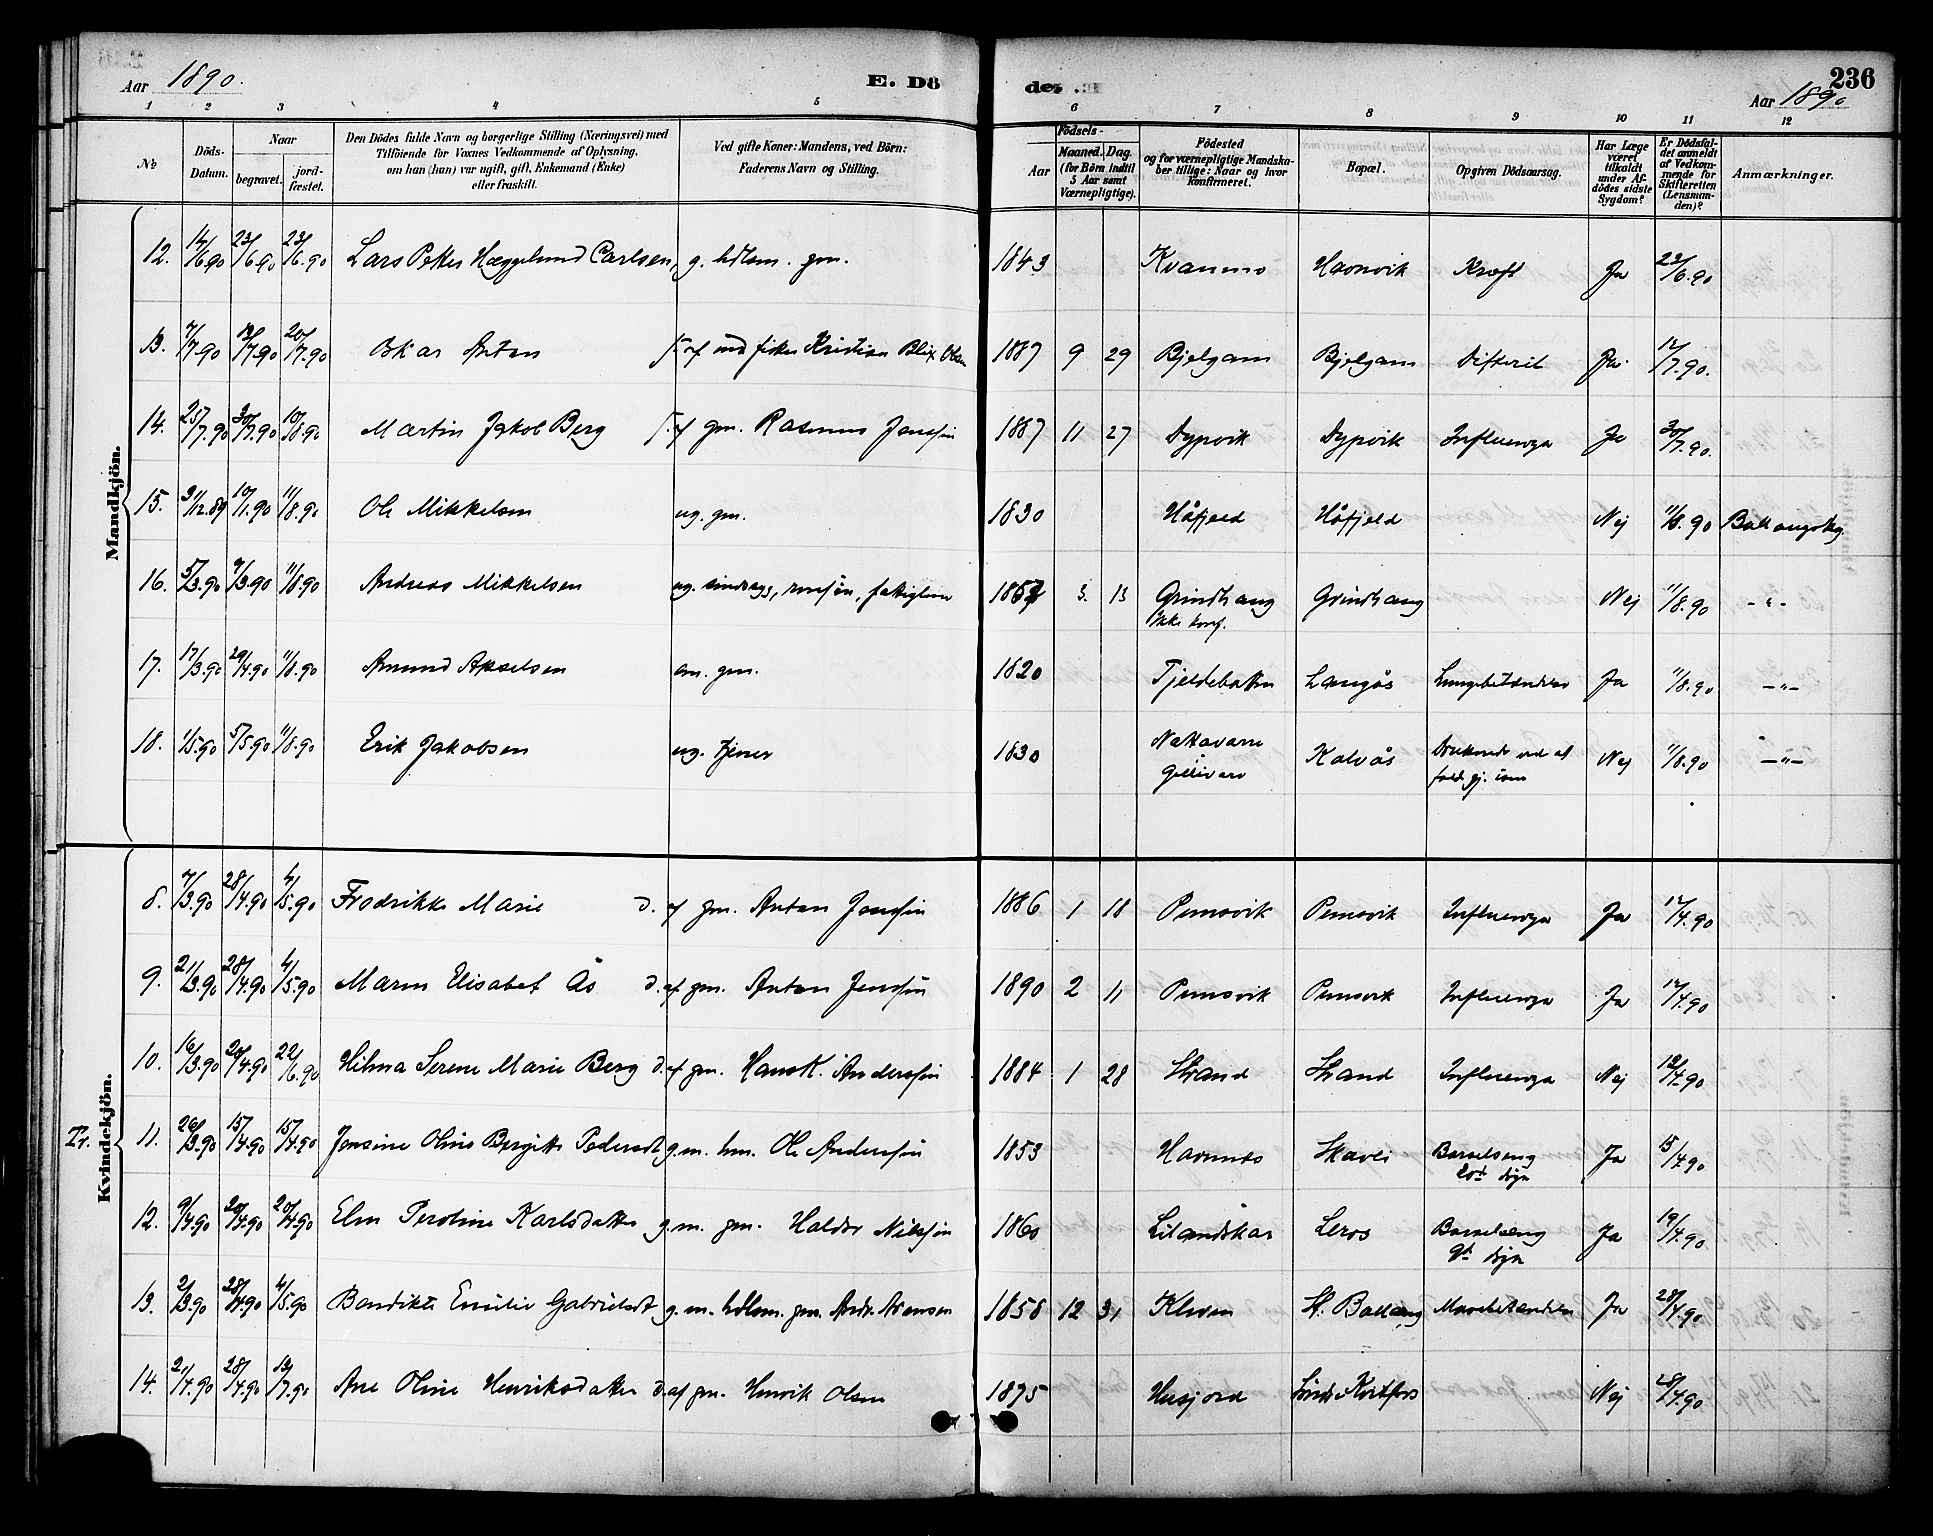 Aar 1890. E. Dö de. 236
Aar 1890
1 2 3 4 5 6 7 8 9 10 11 12
No Döds-Datum. Naar begravet. jord-fæstet. Den Dödes fulde Navn og borgerlige Stilling (Næringsvei) med Tilföiende for Voxnes Vedkommende af Oplysning, om han (hun) var ugift, gift, Enkemand (Enke) eller fraskilt. Ved gifte Koner: Mandens, ved Börn: Faderens Navn og Stilling. Födsels- Aar Maaned. Dag. (for Börn indtil 5 Aar samt Værnepligtige). Födested og for værnepligtige Mandskaber tillige: Naar og hvor konfirmeret. Bopæl. Opgiven Dödsaarsag. Har Læge været tilkaldt under Afdödes sidste Sygdom? Er Dödsfaldet anmeldt af Vedkommende for Skifteretten (Lensmanden)? Anmærkninger.
Mandkjön.
12. 14/6 90 23/6 90 23/6.90 Lars Petter Hæggelund Carlsen, g. hdlsm. gm. 1843 Kvanno Havnvik Kræft Ja 22/6.90
13. 7/7 90 19/7.90 20/7.90 Oskar Anton f. af ind fisker Kristian Blix Olsen 1887 9 29 Bjelgam Bjelgam Difterit Ja 12/7.90.
14. 25/7.90 30/7.90 10/8.90 Martin Jakob Berg f. af gm. Rasmus Jenssen 1887 11 27 Dypvik Dypvik Influenza Ja 30/7.90.
15. 31/12.89 10/1.90 11/8.90 Ole Mikkelsen ug. gm. 1830 Håfjeld Håfjeld Nej 11/8.90 Ballangskg.
16. 5/3.90 9/3.90 11/8.90 Andreas Mikkelsen ug. sindssyg, fattiglem 3. 13 Grindhaug Grindhaug Nej 11/8.90 -"-
ikke konf.
17. 17/3.90 29/4.90 11/8.90 Amund Akselsen em. gm. 1820 Tjeldebotten Langås Lungebetændelse Ja 11/8.90 -"-
18. 1/5.90 5/5.90 11/8.90 Erik Jakobsen ug. tjener 1830 Nattavarre Kalvås Druknede ved at Nej 11/8.90 -"-
Gellivare fald. gj. isen
Kvindekjön.
8. 7/3.90 28/4.90 4/5.90 Fredrikke Marie d. af gm. Anton Jenssen 1886 1 18 Pumsvik Pumsvik Influenza Ja 17/4.90
9. 21/3.90 28/4.90 4/5.90 Maren Elisabet Ås d. af gm. Anton Jenssen 1890 2 11 Pumsvik Pumsvik Influenza Ja 17/4.90
10. 16/3.90 20/4.90 22/6.90 Hilma Serene Marie Berg d. af gm. Hans K. Anderssen 1884 1 28 Strand Strand Influenza Nej 12/4.90
Tr. 11. 26/3.90 15/4.90 15/4.90 Jensine Oline Bergitte Pedersdt, g. m. hm. Ole Anderssen 1853 Havnnes Skavli Barselseng Ja 15/4.90
20de dögn
12. 9/4.90 20/4.90 20/4.90 Elen Peroline Karlsdatter g. m. gm. Haldor Nilssen 1860 Lilandskar Leros Barselseng Ja 19/4.90
9de dögn
13. 2/3.90 28/4.90 4/5.90 Bendikte Emilie Gabrielsdt g. m. hdlsm. gm. Andr. Arensen 1858 12 31 Kleven St. Ballang Mavebetændelse Ja 28/4.90
14. 2/4.90 28/4.90 13/7.90 Ane Oline Henriksdatter d. af gm. Henrik Olsen 1875 Husjord Nej 28/4.90